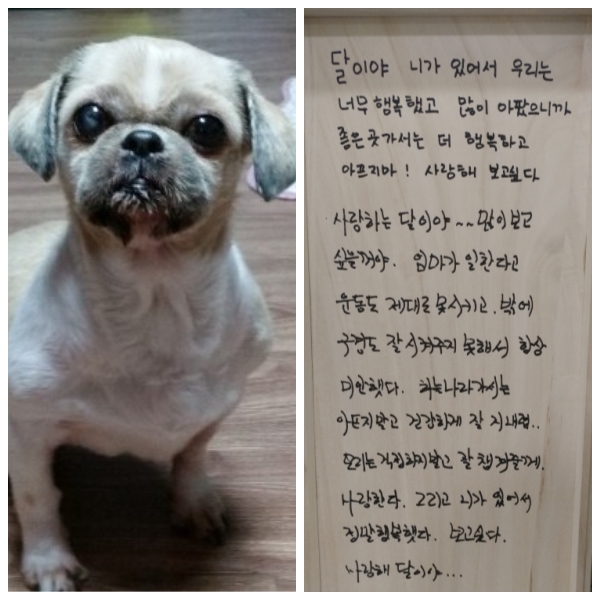 달이야 니가 있어서 우리는
너무 행복했고 많이 아팠으니까
좋은곳가서는 더 행복하고
아프지마! 사랑해 보고싶다
사랑하는 달이야~~ 많이보고
싶을꺼야. 엄마가 일한다고
운동도 제대로 못시키고. 밖에
구경도 잘 시켜주지 못해서 항상
미안했다. 하늘나라가서는
아프지말고 건강하게 잘 지내렴..
걱정하지말고 잘 챙겨줄께.
사랑한다. 그리고 니가 있어서
정말행복했다. 보고싶다.
사랑해 달이야...